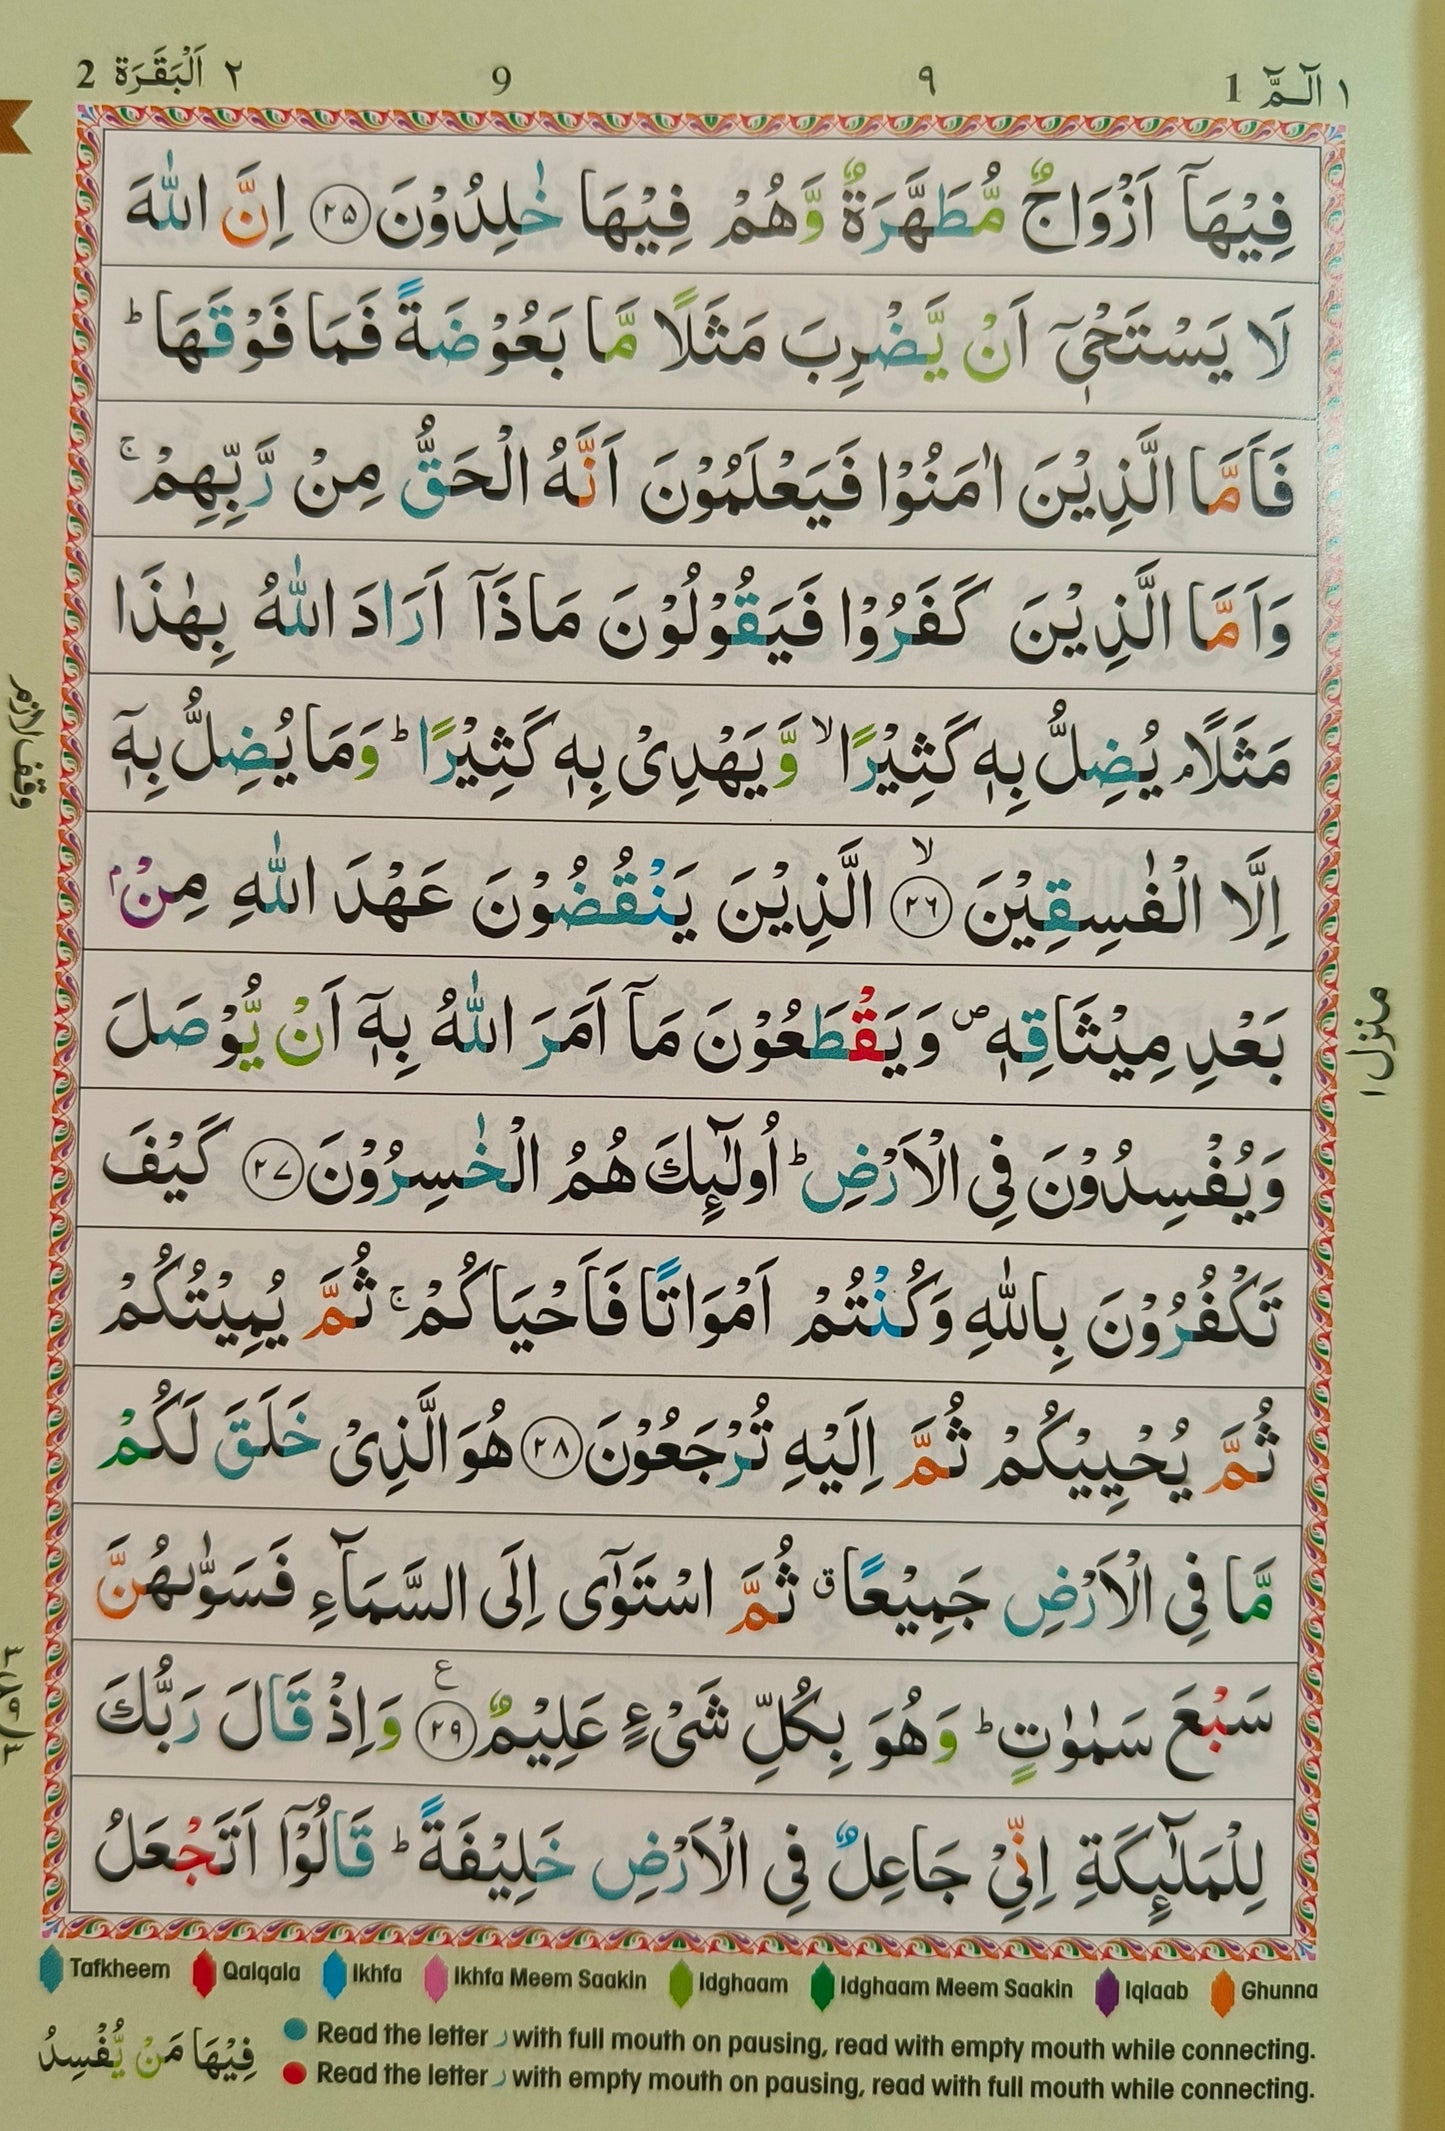 ١ الٓمّٓ 1 ٩ 9 ٢ اَلْبَقَرَة 2
فِيْهَاۤ اَزْوَاجٌ مُّطَهَّرَةٌ وَّهُمْ فِيْهَا خٰلِدُوْنَ ﴿٢٥﴾ اِنَّ اللّٰهَ
لَا يَسْتَحْيٖۤ اَنْ يَّضْرِبَ مَثَلًا مَّا بَعُوْضَةً فَمَا فَوْقَهَا ؕ
فَاَمَّا الَّذِيْنَ اٰمَنُوْا فَيَعْلَمُوْنَ اَنَّهُ الْحَقُّ مِنْ رَّبِّهِمْ ۚ
وَاَمَّا الَّذِيْنَ كَفَرُوْا فَيَقُوْلُوْنَ مَاذَاۤ اَرَادَ اللّٰهُ بِهٰذَا
مَثَلًا ۘ يُضِلُّ بِهٖ كَثِيْرًا ۙ وَّيَهْدِىْ بِهٖ كَثِيْرًا ؕ وَمَا يُضِلُّ بِهٖۤ
اِلَّا الْفٰسِقِيْنَ ۙ ﴿٢٦﴾ الَّذِيْنَ يَنْقُضُوْنَ عَهْدَ اللّٰهِ مِنْۢ
بَعْدِ مِيْثَاقِهٖ ۪ وَيَقْطَعُوْنَ مَاۤ اَمَرَ اللّٰهُ بِهٖۤ اَنْ يُّوْصَلَ
وَيُفْسِدُوْنَ فِى الْاَرْضِ ؕ اُولٰٓئِكَ هُمُ الْخٰسِرُوْنَ ﴿٢٧﴾ كَيْفَ
تَكْفُرُوْنَ بِاللّٰهِ وَكُنْتُمْ اَمْوَاتًا فَاَحْيَاكُمْ ۚ ثُمَّ يُمِيْتُكُمْ
ثُمَّ يُحْيِيْكُمْ ثُمَّ اِلَيْهِ تُرْجَعُوْنَ ﴿٢٨﴾ هُوَ الَّذِىْ خَلَقَ لَكُمْ
مَّا فِى الْاَرْضِ جَمِيْعًا ۗ ثُمَّ اسْتَوٰۤى اِلَى السَّمَآءِ فَسَوّٰىهُنَّ
سَبْعَ سَمٰوٰتٍ ؕ وَهُوَ بِكُلِّ شَىْءٍ عَلِيْمٌ ﴿٢٩﴾ ع وَاِذْ قَالَ رَبُّكَ
لِلْمَلٰٓئِكَةِ اِنِّىْ جَاعِلٌ فِى الْاَرْضِ خَلِيْفَةً ؕ قَالُوْۤا اَتَجْعَلُ
وقف لازم
منزل ١
Tafkheem Qalqala Ikhfa Ikhfa Meem Saakin Idghaam Idghaam Meem Saakin Iqlaab Ghunna
Read the letter ر with full mouth on pausing, read with empty mouth while connecting.
Read the letter ر with empty mouth on pausing, read with full mouth while connecting.
فِيْهَا مَنْ يُّفْسِدُ